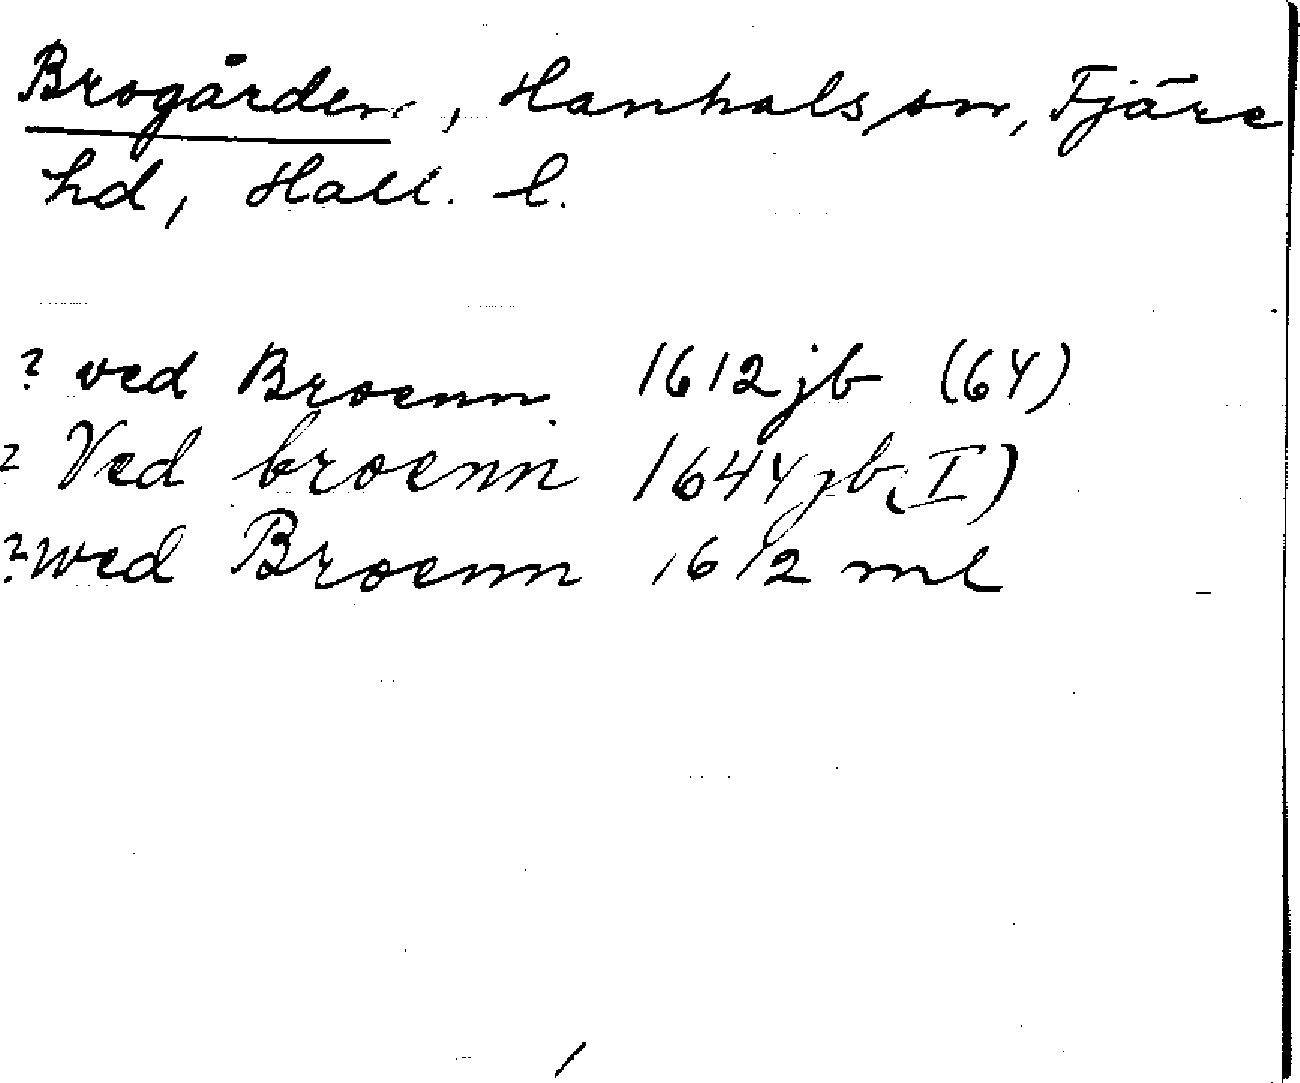 Brogården, Hanhals sn, Fjäre
hd, Hall. l.
? ved Broenn 1612 jb (64)
? Ved broenn 1644 jb (I)
? wed Broenn 1612 ml